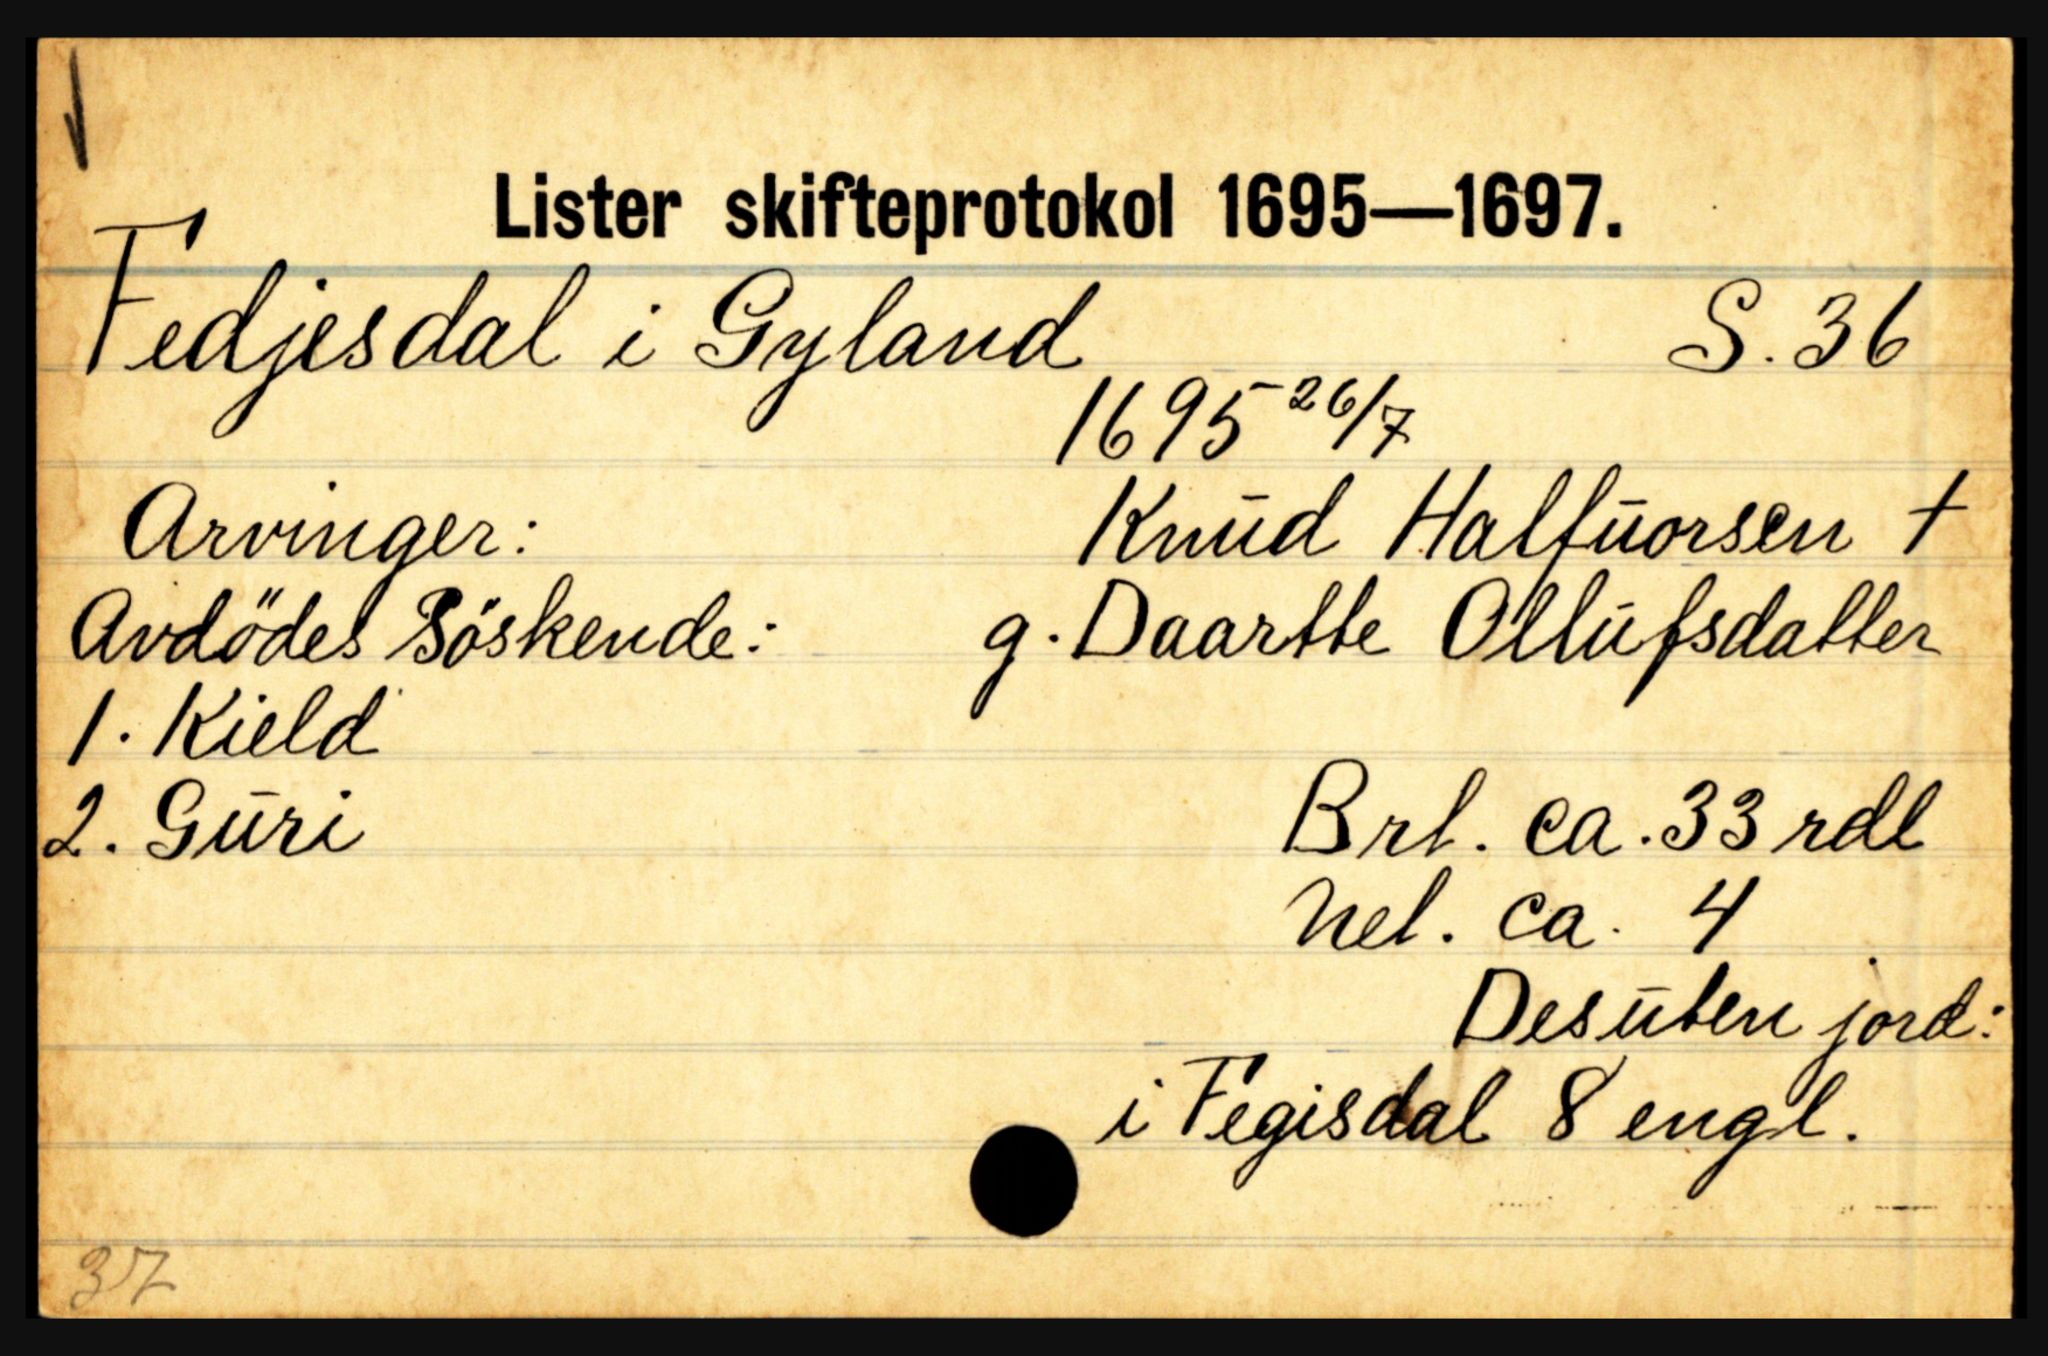 Lister skifteprotokol 1695—1697.
Fedjesdal i Gyland S. 36
1695 26/7
Arvinger: Knud Halfuorsen †
Avdödes Söskende: g. Daartte Ollufsdatter
1. Kield
2. Guri Brt. ca. 33 rdl
Net. ca. 4
Desuten jord:
i Fegisdal 8 engl.
37